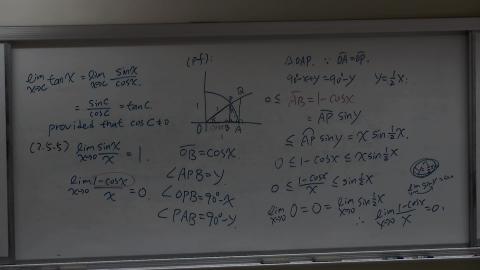 lim x→c tan x = lim x→c sin x / cos x
= sin c / cos c = tan c.
provided that cos c ≠ 0
(2.5.5) lim x→0 sin x / x = 1.
lim x→0 (1-cos x) / x = 0.
(pf):
1
Q
P
O
B
A
1
OB = cos x
∠APB = y
∠OPB = 90°-x
∠PAB = 90°-y
△OAP. ∵ OA = OP.
90°-x+y = 90°-y  y = ½x.
0 ≤ AB = 1-cos x
= AP sin y
≤ AP sin y = x sin ½x.
0 ≤ 1-cos x ≤ x sin ½x
0 ≤ (1-cos x) / x ≤ sin ½x
lim x→0 0 = 0 = lim x→0 sin ½x
∴ lim x→0 (1-cos x) / x = 0.